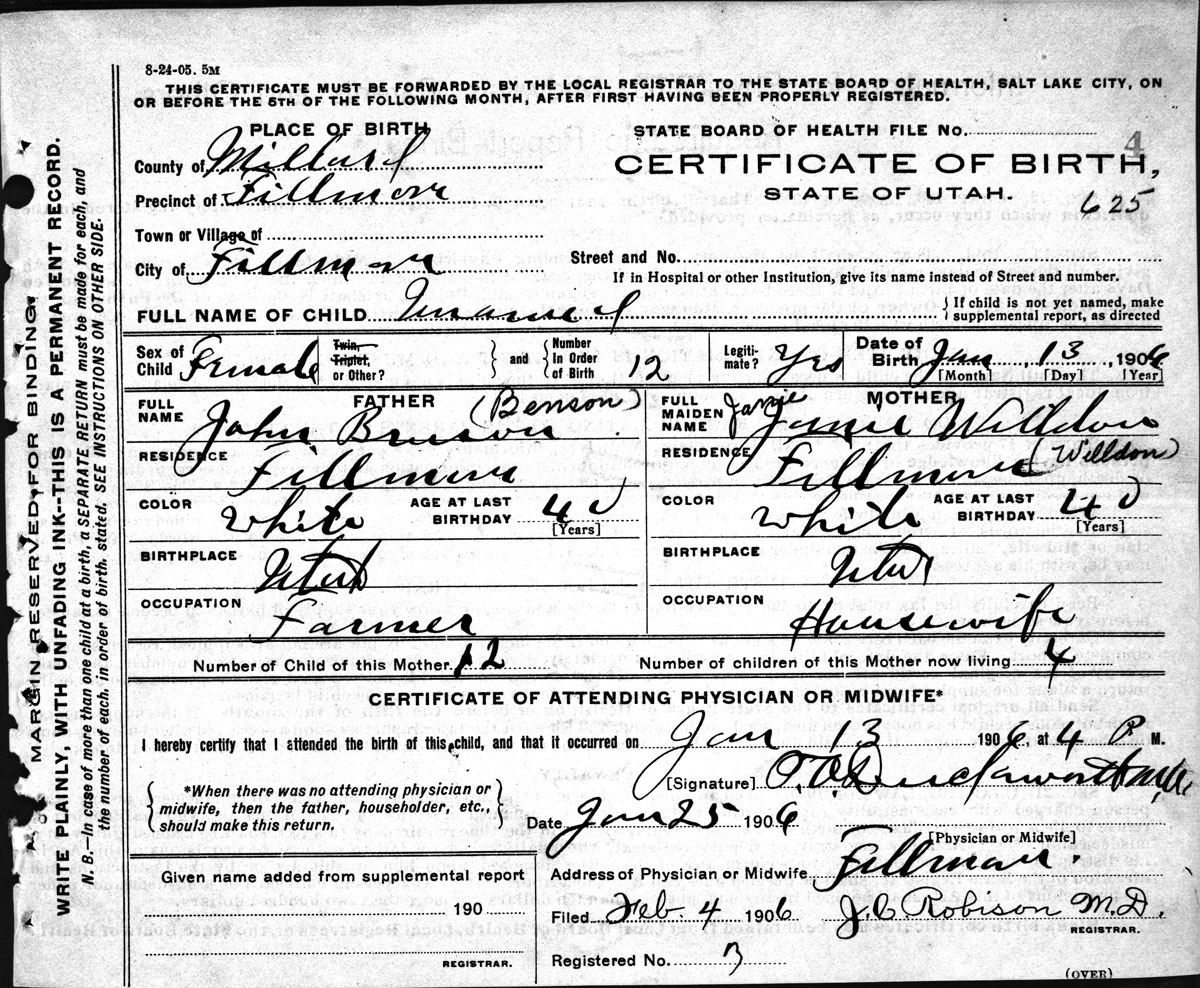 8-24-05. 5M
THIS CERTIFICATE MUST BE FORWARDED BY THE LOCAL REGISTRAR TO THE STATE BOARD OF HEALTH, SALT LAKE CITY, ON
OR BEFORE THE 5TH OF THE FOLLOWING MONTH, AFTER FIRST HAVING BEEN PROPERLY REGISTERED.
MARGIN RESERVED FOR BINDING.
WRITE PLAINLY, WITH UNFADING INK--THIS IS A PERMANENT RECORD.
N. B.—In case of more than one child at a birth, a SEPARATE RETURN must be made for each, and
the number of each, in order of birth, stated. SEE INSTRUCTIONS ON OTHER SIDE.
PLACE OF BIRTH
County of Millard
Precinct of Fillmore
Town or Village of
City of Fillmore
STATE BOARD OF HEALTH FILE No. 4
CERTIFICATE OF BIRTH,
STATE OF UTAH.
625
Street and No.
If in Hospital or other Institution, give its name instead of Street and number.
FULL NAME OF CHILD Unnamed } If child is not yet named, make
supplemental report, as directed
Sex of Child Female
Twin, Triplet, or Other?
and Number In Order of Birth 12
Legitimate? Yes
Date of Birth Jan 13, 1906
[Month] [Day] [Year]
FATHER
FULL NAME John Benson (Benson)
RESIDENCE Fillmore
COLOR White AGE AT LAST BIRTHDAY 40 [Years]
BIRTHPLACE Utah
OCCUPATION Farmer
MOTHER
FULL MAIDEN NAME Janie Janie Willdon
(Willdon)
RESIDENCE Fillmore
COLOR White AGE AT LAST BIRTHDAY 40 [Years]
BIRTHPLACE Utah
OCCUPATION Housewife
Number of Child of this Mother 12 Number of children of this Mother now living 4
CERTIFICATE OF ATTENDING PHYSICIAN OR MIDWIFE*
I hereby certify that I attended the birth of this child, and that it occurred on Jan 13 1906, at 4 P M.
*When there was no attending physician or
midwife, then the father, householder, etc.,
should make this return.
[Signature]
Date Jan 25 1906
[Physician or Midwife]
Address of Physician or Midwife Fillmore.
Given name added from supplemental report
190
REGISTRAR.
Filed Feb. 4 1906 J. C. Robison M.D.
REGISTRAR.
Registered No. 3
(OVER)